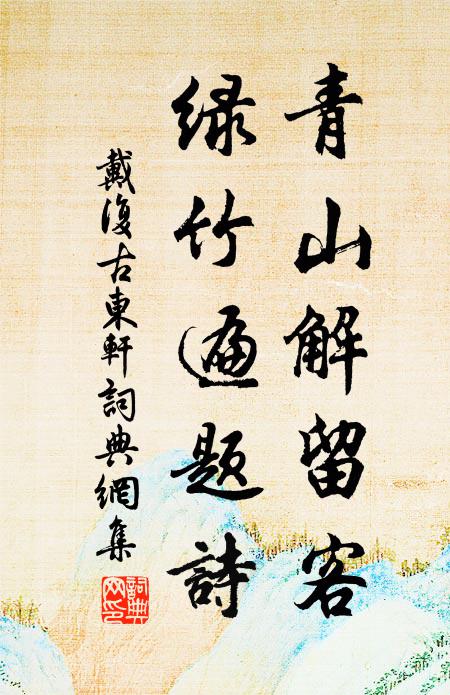 青山解留客
绿竹遍题詩
戴復古東軒詞典網集
詞典网印